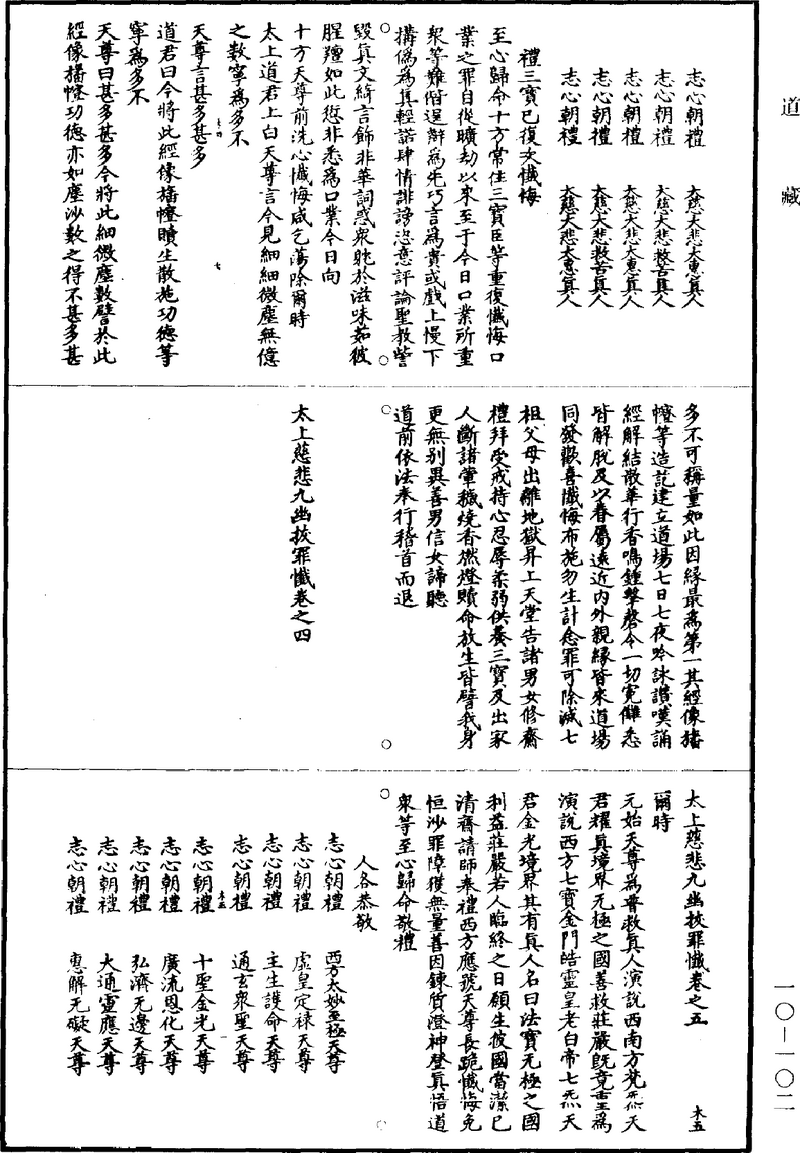 道藏
志心朝禮　大慈大悲大惠真人
志心朝禮　大慈大悲救苦真人
志心朝禮　大慈大悲大惠真人
志心朝禮　大慈大悲救苦真人
志心朝禮　大慈大悲大惠真人
禮三寶已復次懺悔
至心歸命十方常住三寶臣等重復懺悔口
業之罪自從曠劫以來至于今日口業所重
衆等難階逞辯為先巧言為貴或戲上慢下
搆僞為真輕諾肆情誹謗恣意評論聖教訾
毀真文綺言飾非華詞惑衆躭於滋味茹彼
腥羶如此愆非悉為口業今日向
十方天尊前洗心懺悔咸乞蕩除爾時
太上道君上白天尊言今見細細微塵無億
之數寧為多不
天尊言甚多甚多
道君曰今將此經像旛幢贖生散施功德等
寧為多不
天尊曰甚多甚多今將此細微塵數譬於此
經像旛幢功德亦如塵沙數之得不甚多甚
多不可稱量如此因緣最為第一其經像旛
幢等造訖建立道場七日七夜吟詠讚嘆誦
經解結散華行香鳴鍾擊磬令一切冤讎悉
皆解脫及以眷屬遠近內外親緣皆來道場
同發歡喜懺悔布施勿生計念罪可除滅七
祖父母出離地獄昇上天堂告諸男女修齋
禮拜受戒持心忍辱柔弱供養三寶及出家
人斷諸葷穢燒香燃燈贖命放生皆譬我身
更無別異善男信女諦聽
道前依法奉行稽首而退
太上慈悲九幽拔罪懺卷之四
太上慈悲九幽拔罪懺卷之五　木五
爾時
元始天尊為普救真人演說西南方梵炁天
君耀真境界无極之國善救莊嚴既竟重為
演說西方七寶金門皓靈皇老白帝七炁天
君金光境界其有真人名曰法寶无極之國
利益莊嚴若人臨終之日願生彼國當潔己
清齋請師奉禮西方應號天尊長跪懺悔免
恒沙罪障獲無量善因鍊質澄神登真悟道
衆等至心歸命敬禮
人各恭敬
志心朝禮　西方太妙至極天尊
志心朝禮　虛皇定祿天尊
志心朝禮　主生護命天尊
志心朝禮　通玄衆聖天尊
志心朝禮　十聖金光天尊
志心朝禮　廣流恩化天尊
志心朝禮　弘濟无邊天尊
志心朝禮　大通靈應天尊
志心朝禮　惠解无礙天尊
一〇—一〇二